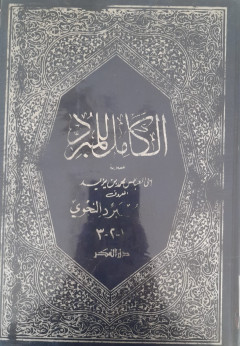 الكامل للمبرد
ابى العباس محمد بن يزيد
المعروف
بالمبرد النحوي
١-٢-٣
دار الفكر